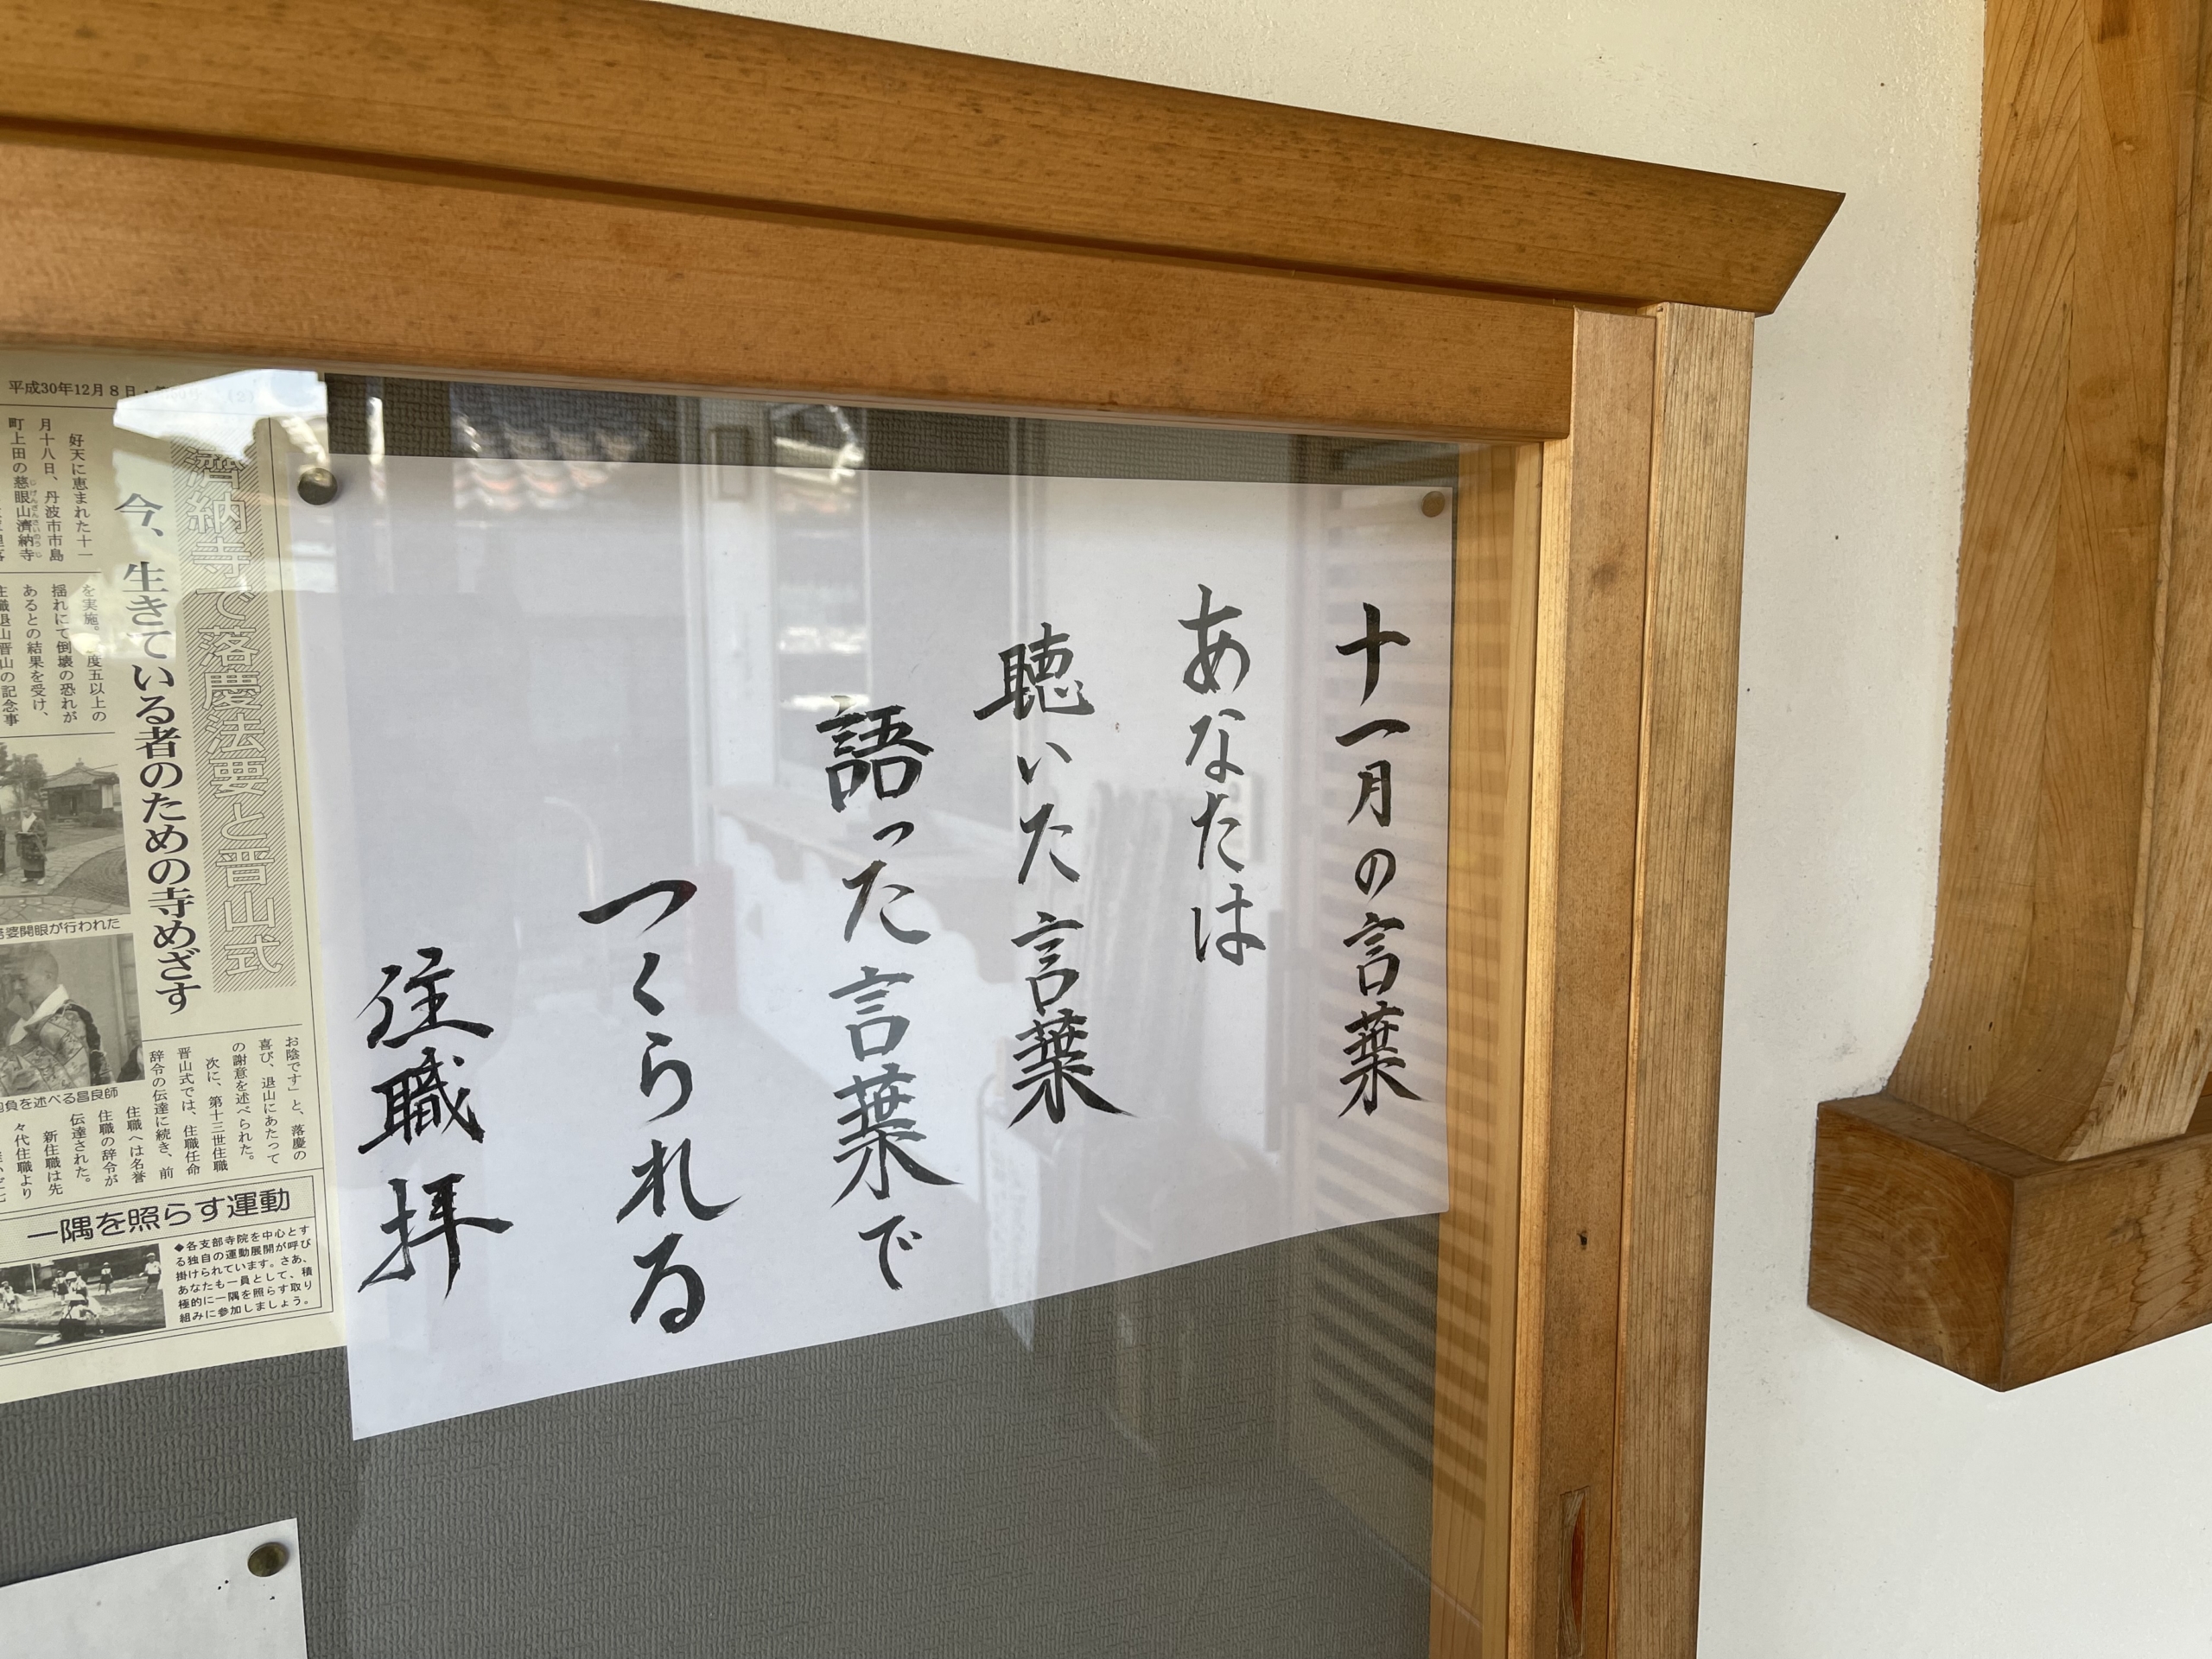 十一月の言葉
あなたは
聴いた言葉
語った言葉で
つくられる
住職 拝
平成30年12月8日・
(2)
濟納寺で落慶法要と晋山式
今、生きている者のための寺めざす
好天に恵まれた十一
月十八日、丹波市市島
町上田の慈眼山濟納寺
を実施。
度五以上の
揺れにて倒壊の恐れが
あるとの結果を受け、
住職退山晋山の記念事
婆開眼が行われた
負を述べる昌良師
お陰です」と、落慶の
喜び、退山にあたって
の謝意を述べられた。
次に、第十三世住職
晋山式では、住職任命
辞令の伝達に続き、前
住職へは名誉
住職の辞令が
伝達された。
新住職は先
々代住職より
一隅を照らす運動
◆各支部寺院を中心とす
る独自の運動展開が呼び
掛けられています。さあ、
あなたも一員として、積
極的に一隅を照らす取り
組みに参加しましょう。